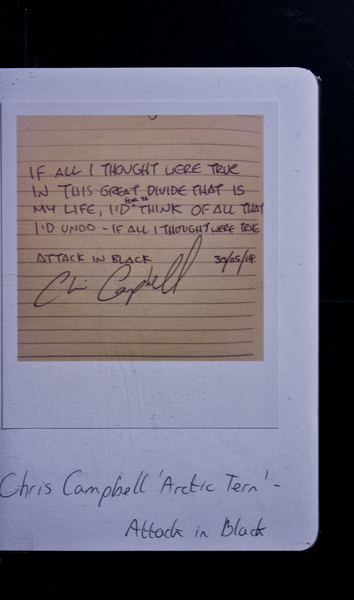 IF ALL I THOUGHT WERE TRUE
IN THIS GREAT DIVIDE THAT IS
FEAR TO
MY LIFE, I'D THINK OF ALL THAT
I'D UNDO - IF ALL I THOUGHT WERE TRUE
ATTACK IN BLACK 30/05/19
Chris Campbell
Chris Campbell 'Arctic Tern' -
Attack in Black